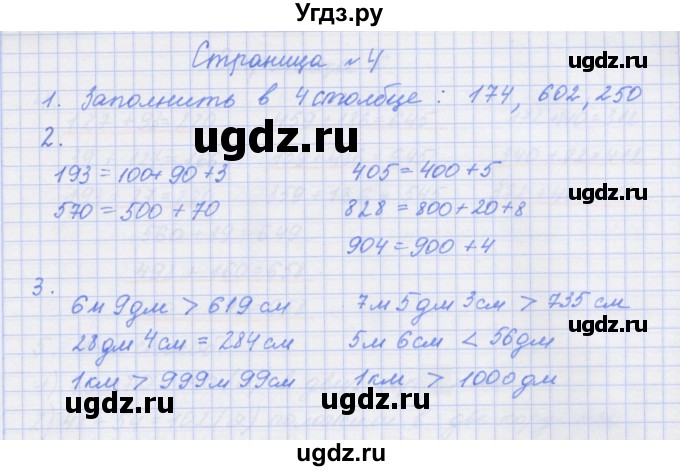 Угдз.ру
Страница №4
ugdz.ru
1. Заполнить в 4 столбце : 174, 602, 250
2.
ugdz.ru
ugdz.ru
193 = 100+ 90 +3 405 = 400 + 5
570 = 500 + 70 828 = 800 + 20 + 8
904 = 900 + 4
3.
6м 9дм > 619 см 7м 5дм 3см > 735 см
ugdz.ru
28дм 4см = 284 см 5м 6см < 56дм
1км > 999м 99см 1км > 1000дм
ugdz.ru
ugdz.ru
ugdz.ru